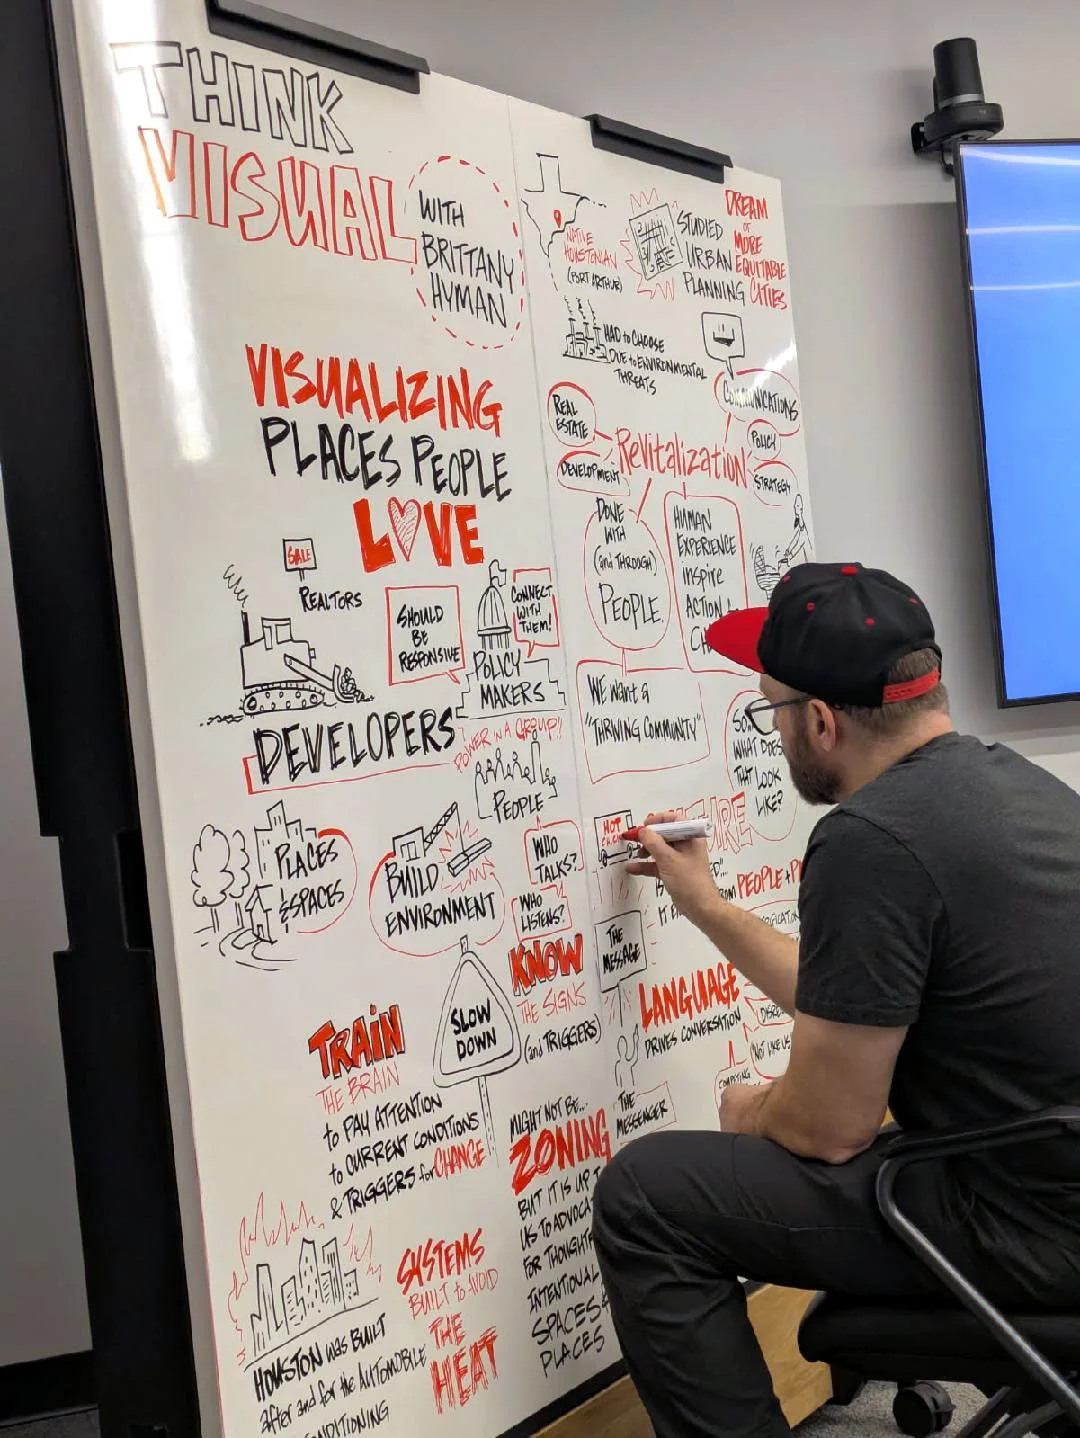 THINK
VISUAL
WITH
BRITTANY
HYMAN
VISUALIZING
PLACES PEOPLE
LOVE
SALE
REALTORS
SHOULD
BE
RESPONSIVE
CONNECT
WITH
THEM!
POLICY
MAKERS
DEVELOPERS
POWER IN A GROUP!!
PEOPLE
PLACES
& SPACES
BUILD
ENVIRONMENT
WHO
TALKS?
WHO
LISTENS?
KNOW
THE SIGNS
(and TRIGGERS)
SLOW
DOWN
TRAIN
THE BRAIN
to PAY ATTENTION
to CURRENT CONDITIONS
& TRIGGERS for CHANGE
MIGHT NOT BE...
ZONING
BUT IT IS UP T
US TO ADVOCA
FOR THOUGHTF
INTENTIONAL
SPACES &
PLACES
SYSTEMS
BUILT to AVOID
THE
HEAT
HOUSTON WAS BUILT
after and for the AUTOMOBILE
ONDITIONING
NATIVE
HOUSTONIAN
(PORT ARTHUR)
STUDIED
URBAN
PLANNING
DREAM
OF
MORE
EQUITABLE
CITIES
HAD to CHOOSE
DUE to ENVIRONMENTAL
THREATS
COMMUNICATIONS
REAL
ESTATE
DEVELOPMENT
ReVitalizatioN
POLICY
STRATEGY
DONE
WITH
(and THROUGH)
PEOPLE.
HUMAN
EXPERIENCE
inspire
ACTION &
CH
WE WANT a
"THRIVING COMMUNITY"
SO...
WHAT DOES
THAT LOOK
LIKE?
HOT
FROM PEOPLE + P
THE
MESSAGE
LANGUAGE
DRIVES CONVERSATION
(NOT LIKE US
COMPETING
THE
MESSENGER